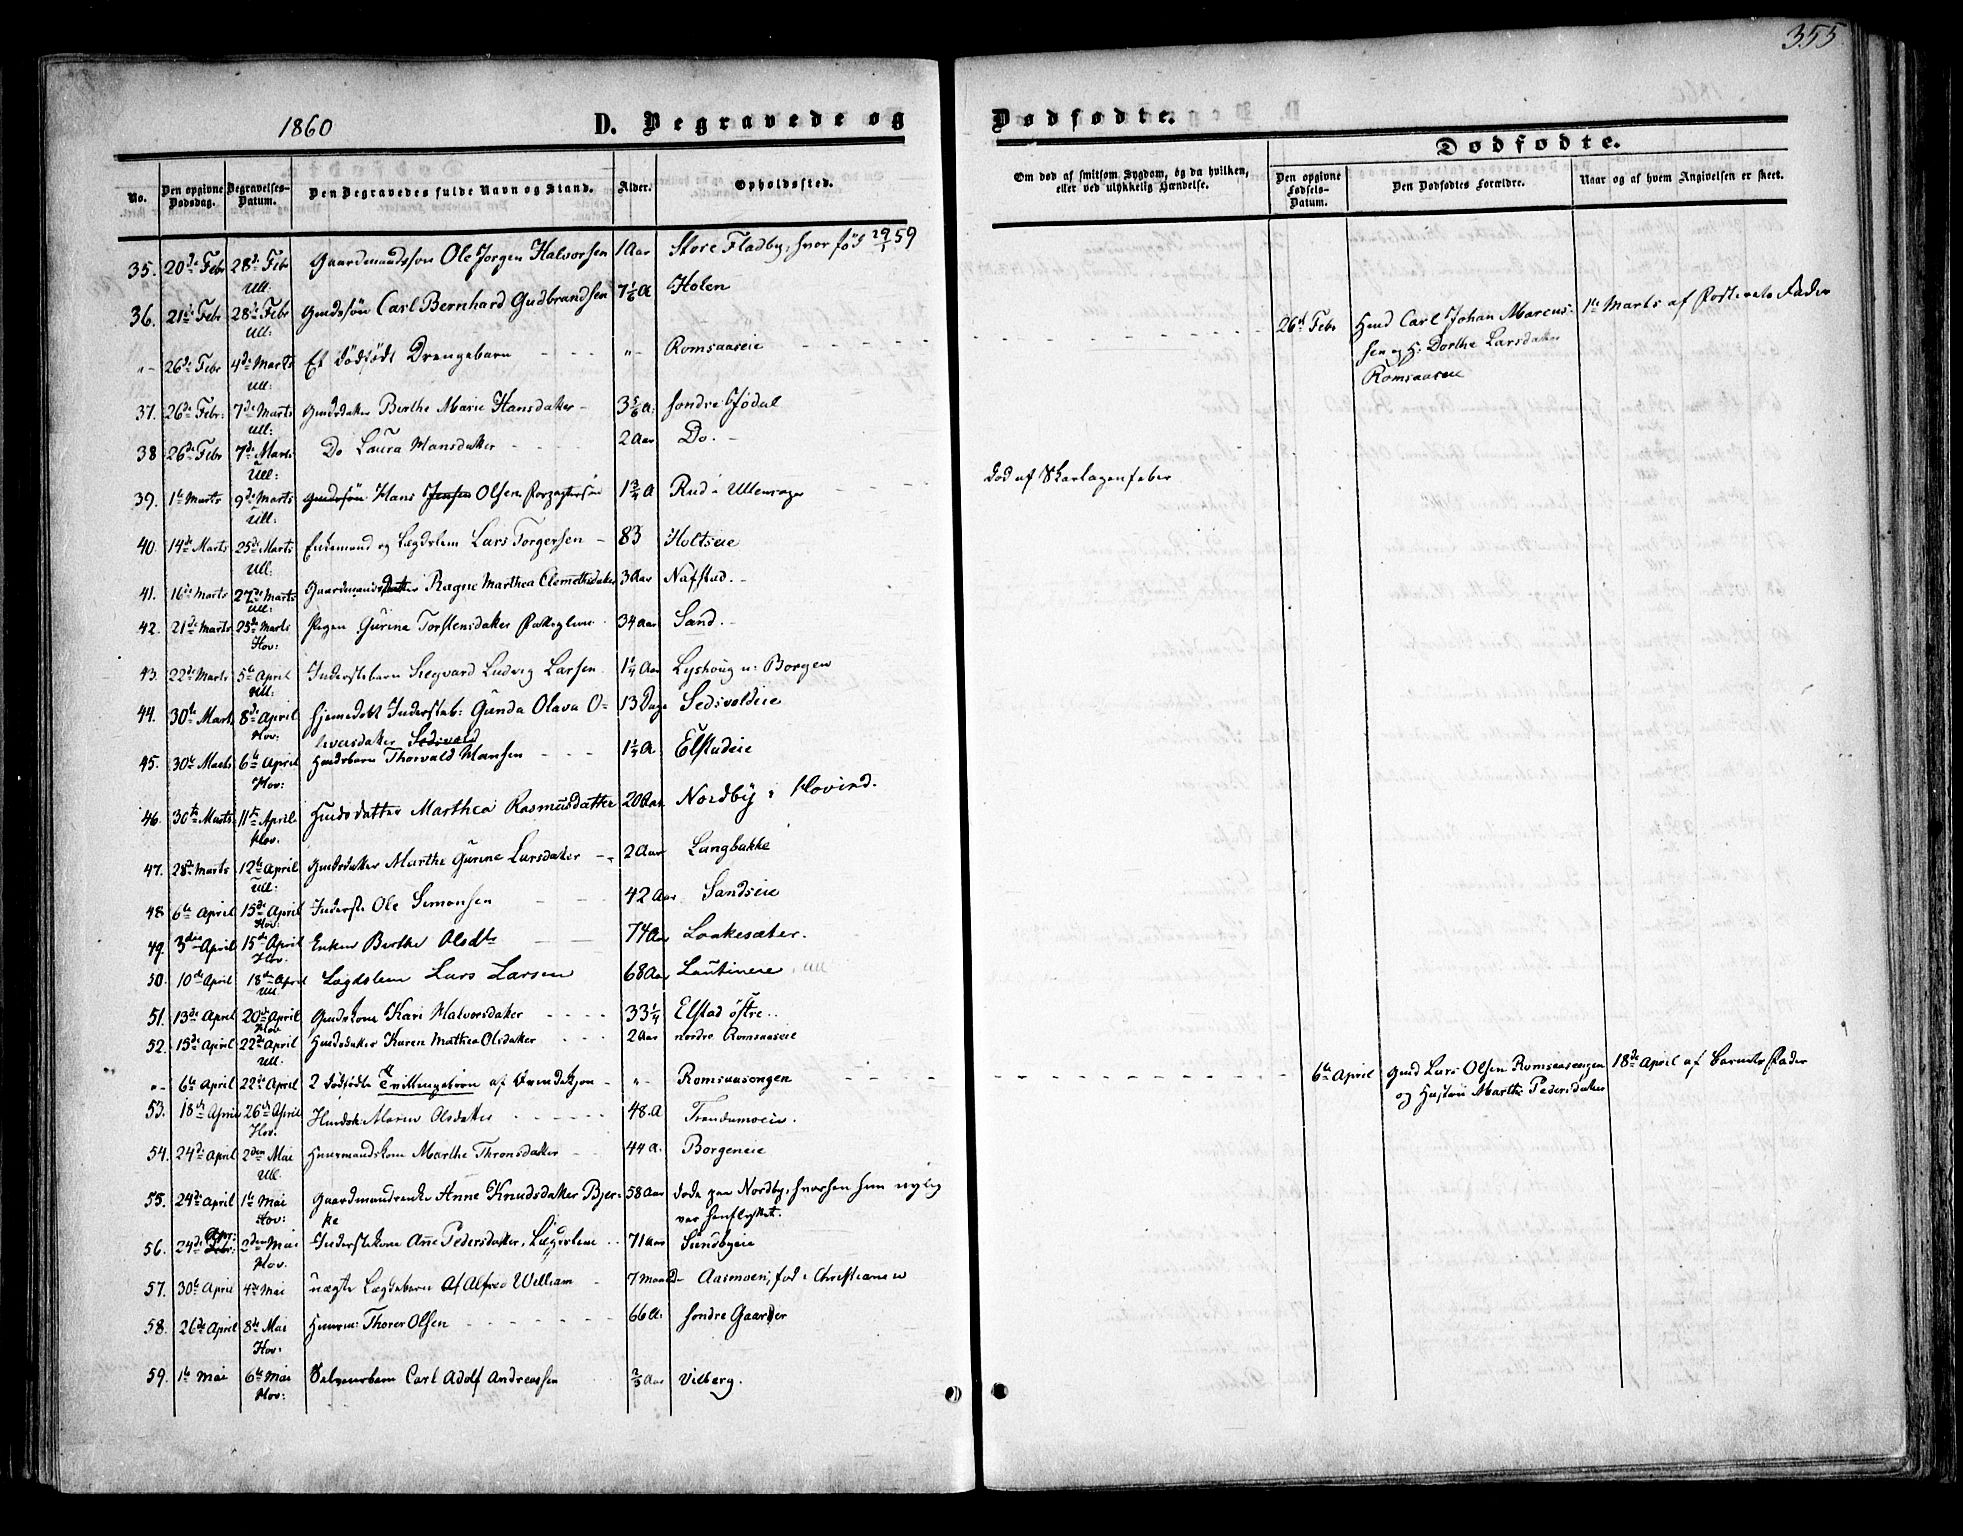 355
1860
D. Begravede og
Dødfødte.
Dødfødte.
No.
Den opgivne Dødsdag.
Begravelses-Datum.
Den Begravedes fulde Navn og Stand.
Alder.
Opholdssted.
Om død af smitsom Sygdom, og da hvilken, eller ved ulykkelig Hændelse.
Den opgivne Fødsels-Datum.
Den Dødfødtes Forældre.
Naar og af hvem Angivelsen er skeet.
35. 20de Febr 28de Febr Ull: Gaardmandssøn Ole Jørgen Halvorsen 1 Aar Store Fladby, hvor fød 29/1 59
36. 21de Febr 28de Febr Ull: Gmdssøn Carl Bernhard Gudbrandsen 7 1/6 A Holen
"- 26de Febr 4de Marts Ull: Et dödfödt Drengebarn "- Romsaaseie
26de Febr Hmd Carl Johan Marcus-
sen og H. Dorthe Larsdatter
Romsaaseie
1te Marts af Fosterets Fader
37. 26de Febr: 7de Marts Ull: Gmdsdatter Berthe Marie Hansdatter 3 5/6 A: søndre Jødal
38 26de Febr 7de Marts Ull: Do Laura Hansdatter 2 Aar Do.
39. 1te Marts 9de Marts Ull: Hans Jensen Olsen 1 3/4 A Rud i Ullensager
Død af Skarlagensfeber
40. 14de Marts 25de Marts Ull: Enkemand og Lægdslem Lars Torgersen 83 Holtseie
41. 16de Marts 27de Marts Ull: Gaardmandsdatter Ragne Marthea Clemethsdatter 3 Aar Nafstad.
42. 21de Marts 25de Marts Hov: Pigen Gurine Torstensdatter 34 Aar Sand.
43. 22de Marts 5te April Ull: Inderstebarn Siegvard Ludvig Larsen 1 1/4 Aar Lyshoug u: Borgen
44. 30te Marts 8de April Hov: hjemmedøbt Inderstsb: Gunda Olava O- 13 Dage Sedsvoldeie
leversdatter Sedsvold
45. 30te Marts 6te April Hov: Hmdsbarn Thorvald Hansen 1 1/4 A Elstadeie
46. 30te Marts 11te April Hov. Hmdsdatter Marthea Rasmusdatter 20 Aar Nordby i Hovind.
47. 28de Marts 12te April Ull: Gmdsdatter Marthe Gurine Larsdatter 2 Aar Langbakke
48 6te April 15de April Hov: Inderste Ole Simonsen 42 Aar Sandseie
49. 3die April 15de April Hov. Enken Berthe Olsdtr 74 Aar Laakesæter.
50. 10de April 18de April Ull Lægdslem Lars Larsen 68 Aar Ull
51. 13de April 20de April Hov Gmdskone Kari Halvorsdatter 33 1/4 Elstad östre
52. 15de April 22de April Ull. Hmdsdatter Karen Mathea Olsdatter 2 Aar nordre Romsaaseie
"- 6te April 22de April 2 dödfödte Tvillingebörn af Qvindekjøn "- Romsaasengen
6te April Gmd Lars Olsen Romsaasengen
og Hustru Marthe Pedersdatter
18de April af Barnets Fader
53. 18de April 26de April Hov. Hmdsk: Maren Olsdatter 48 A Trandumseie.
54. 24de April 2den Mai Ull. Huusmandskone Marthe Thronsdatter 44 A. Borgeneie
55. 24de April 1te Mai Hov: Gaardmandsenke Anne Knudsdatter Bjer- 58 Aar døde paa Nordby, hvorhen hun nylig
ke var henflyttet.
56. 24de Febr: Apr: 2den Mai Hov. Inderstekone Ane Pedersdatter, Lægdslem 71 Aar Sundbyeie
57. 30te April 4de Mai uægte Lægdebarn Alfred William 7 Maaned Aasmoen, fød i Christiania
58. 26de April 8de Mai Hov: Huusm: Thorer Olsen 66 A: søndre Gaarder
59. 1te Mai 6te Mai Hov: Carl Adolf Andreassen 2/3 Aar Vilberg.